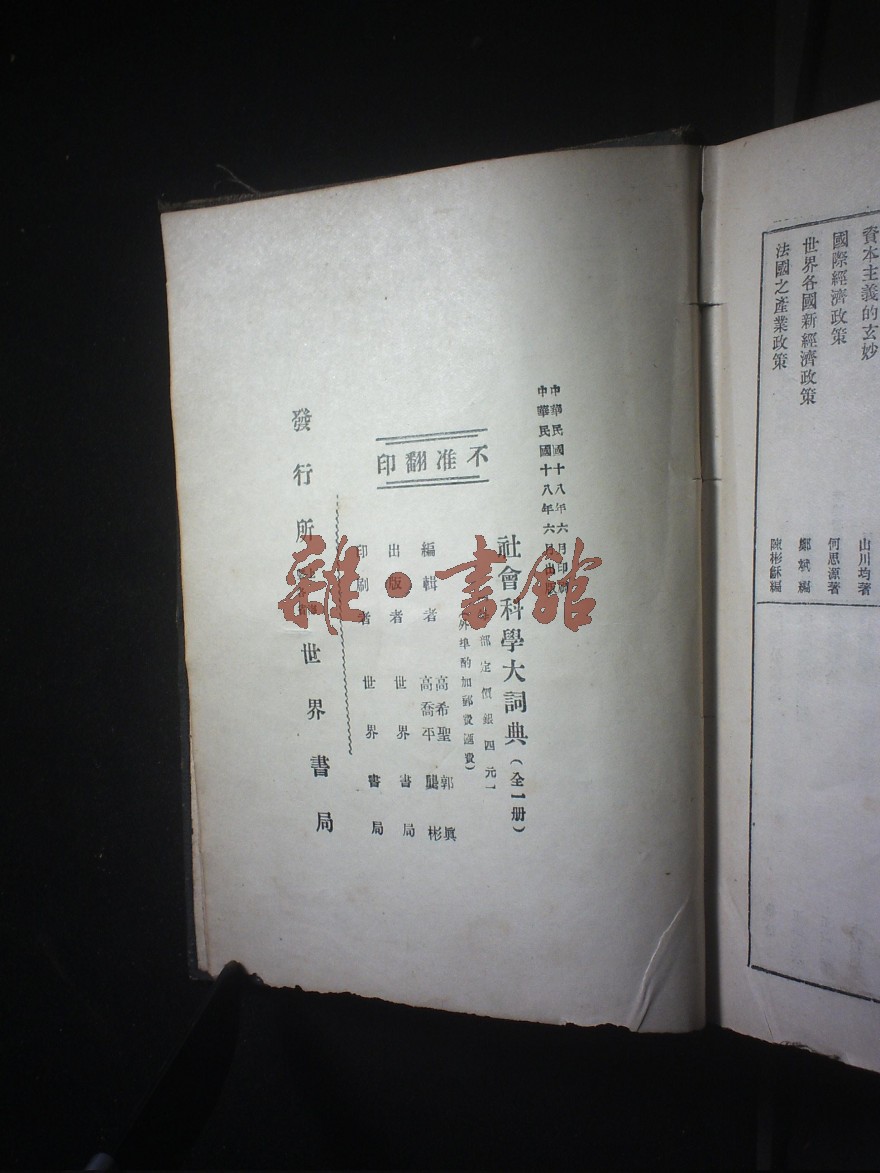 中華民國十八年六月印刷
中華民國十八年六月出版
社會科學大詞典(全一册)
部定價銀四元
(外埠酌加郵費匯費)
不准翻印
編輯者 高希聖 郭眞 高喬平 龔彬
出版者 世界書局
印刷者 世界書局
發行所 世界書局
雜·書館
資本主義的玄妙 山川均著
國際經濟政策 何思源著
世界各國新經濟政策 鄭斌編
法國之產業政策 陳彬龢編